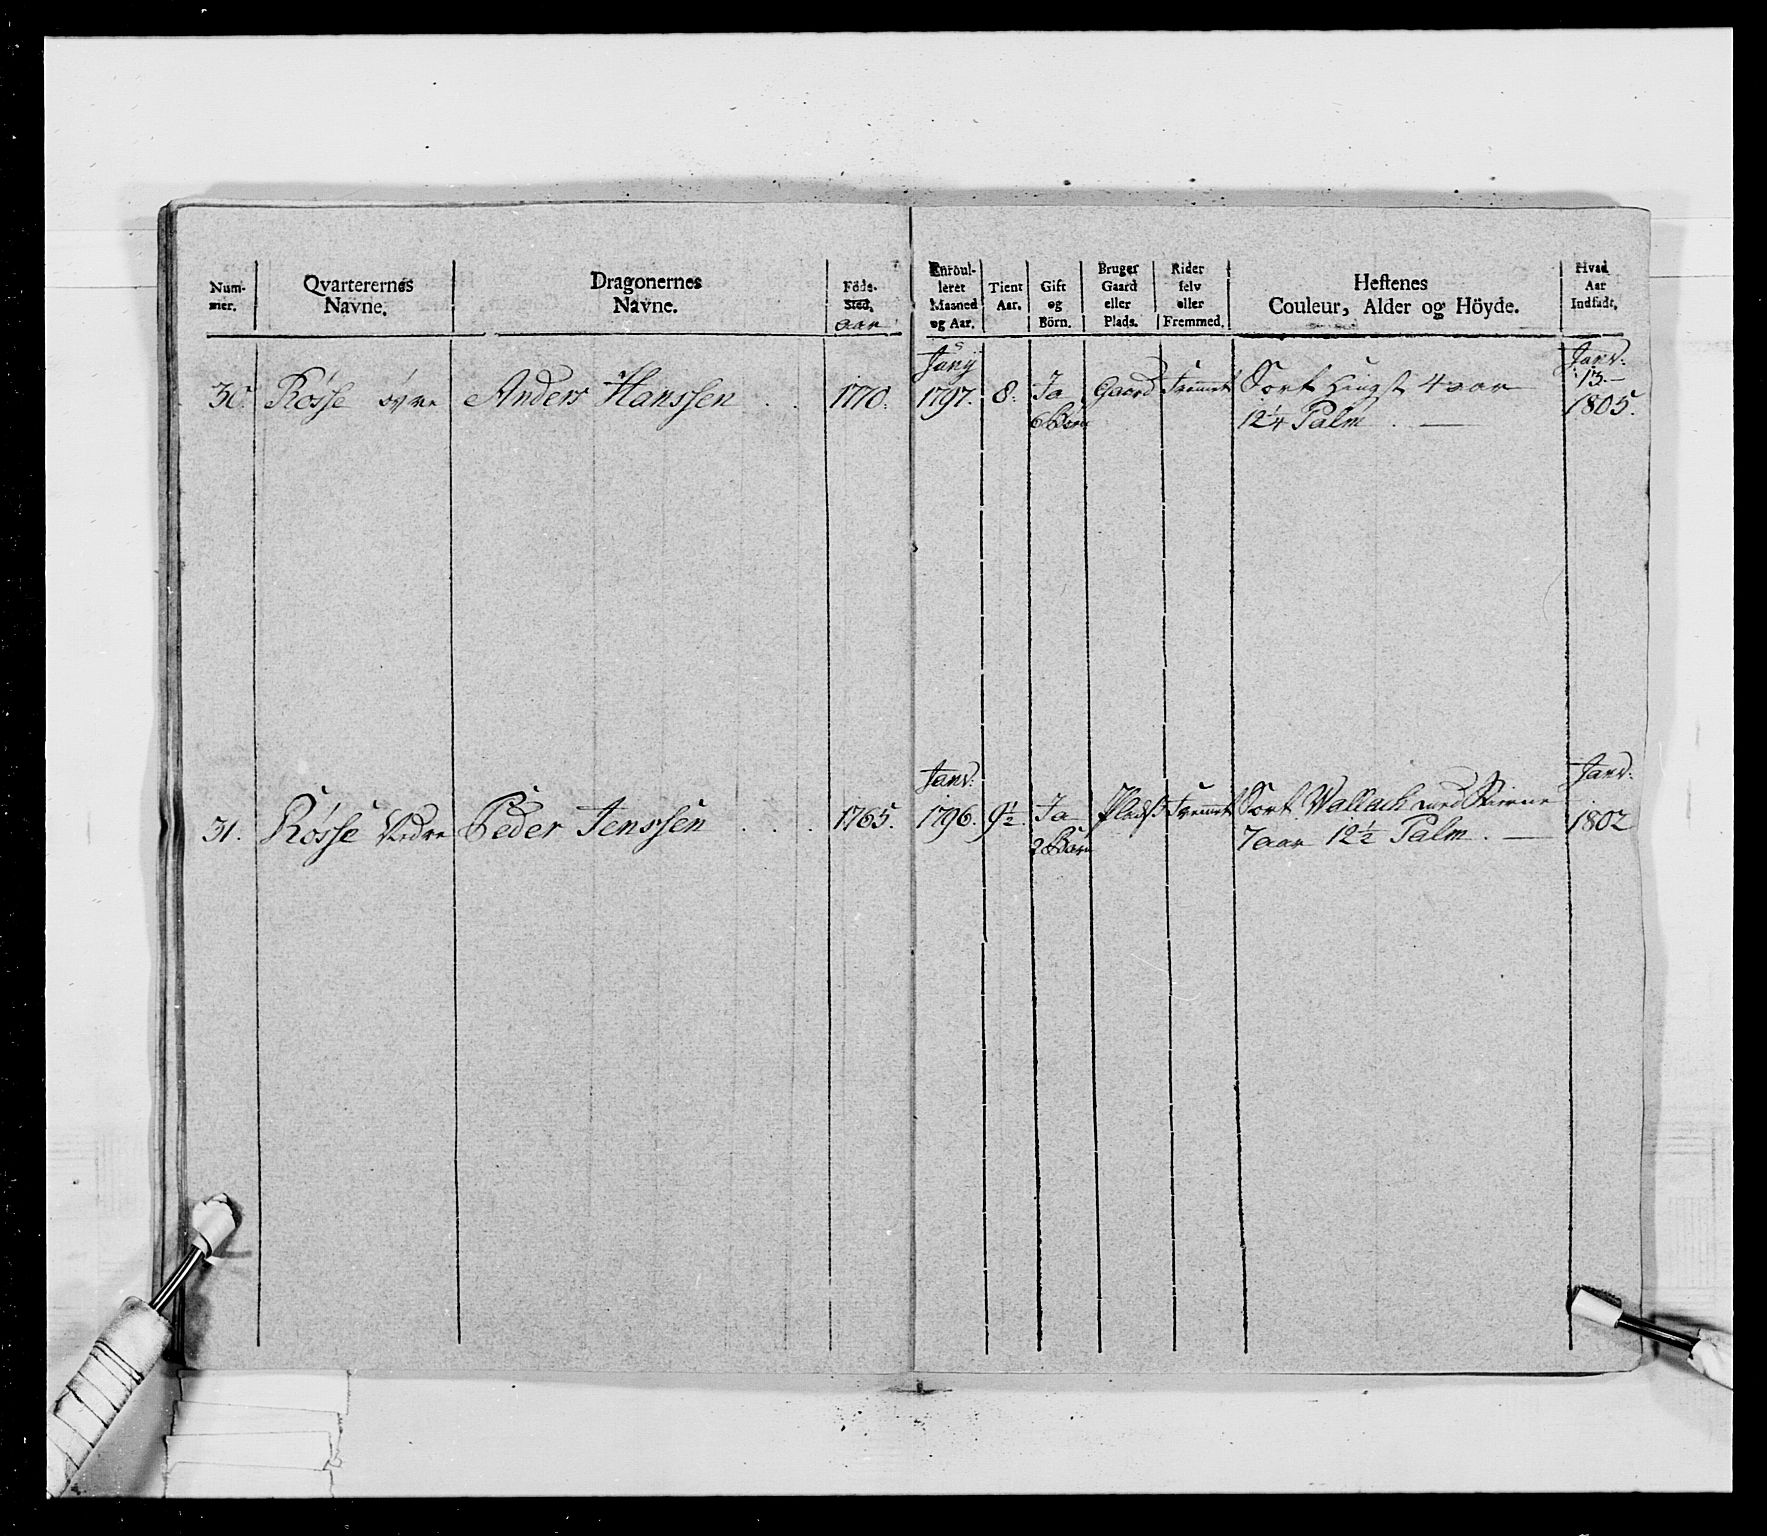 Num-
mer.
Qvarterernes
Navne.
Dragonernes
Navne.
Föde-
Sted.
aar
Enroul-
leret
Maaned
og Aar.
Tient
Aar.
Gift
og
Börn.
Bruger
Gaard
eller
Plads.
Rider
selv
eller
Fremmed.
Hestenes
Couleur, Alder og Höyde.
Hvad
Aar
Indsadt.
30. Røsse øvre Anders Hanssen 1770.
Junÿ
1797. 8. Ja Gaard Fremet Sort Hingst 4 aar
6 Børn 12¼ Palm. —
Janv:
13.
1805.
31. Røsse Nedre Peder Jenssen 1765.
Janv:
1796. 9½. Ja Pladß Fremet Sort Wallach med Stierne
2 Børn 7 aar 12½ Palm. —
Janv:
1802